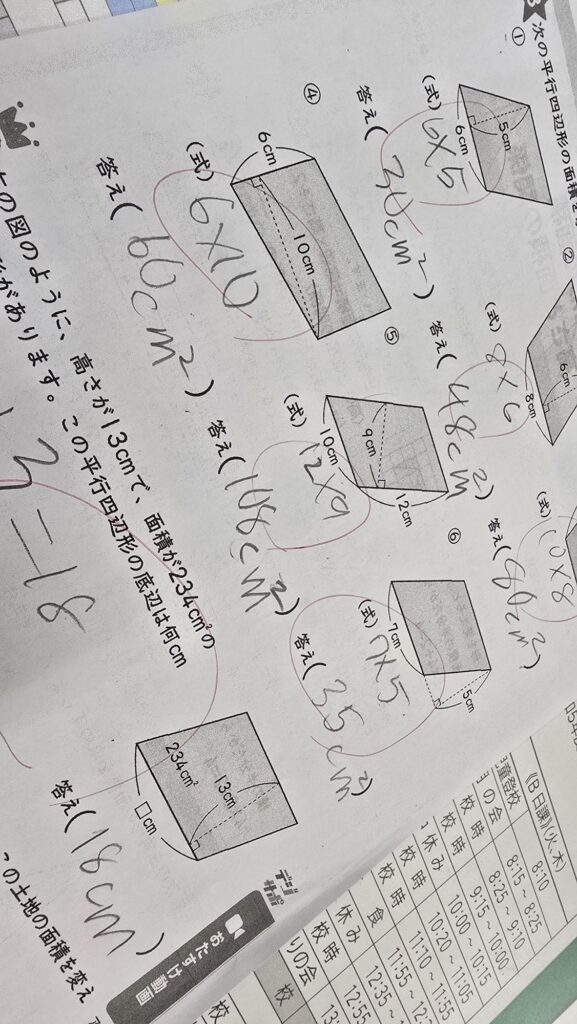 3
次の平行四辺形の面積を
①
5cm
6cm
(式) 6×5
答え( 30cm² )
②
6cm
8cm
(式) 8×6
答え( 48cm² )
(式) 10×8
答え( 80cm² )
④
6cm
10cm
(式) 6×10
答え( 60cm² )
⑤
10cm
9cm
12cm
(式) 12×9
答え( 108cm² )
⑥
7cm
5cm
(式) 7×5
答え( 35cm² )
の図のように、高さが13cmで、面積が234cm²の
があります。この平行四辺形の底辺は何cm
13=18
234cm²
13cm
□cm
答え( 18cm )
の土地の面積を変え
デジサポ
おたすけ動画
《B日課》(火、木)
童登校 8:10
の会 8:15 ~ 8:25
校時 8:25 ~ 9:10
校時 9:15 ~ 10:00
休み 10:00 ~ 10:15
校時 10:20 ~ 11:05
校時 11:10 ~ 11:55
食 11:55 ~
休み 12:35 ~
りの会 12:55
校時 13:
校